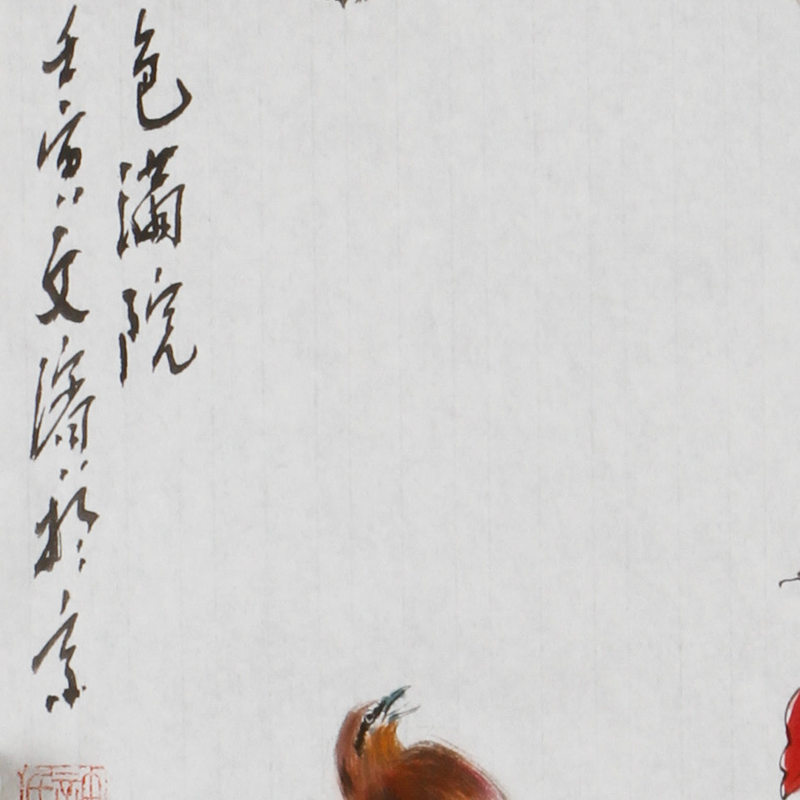 色满院
壬寅文濤於京